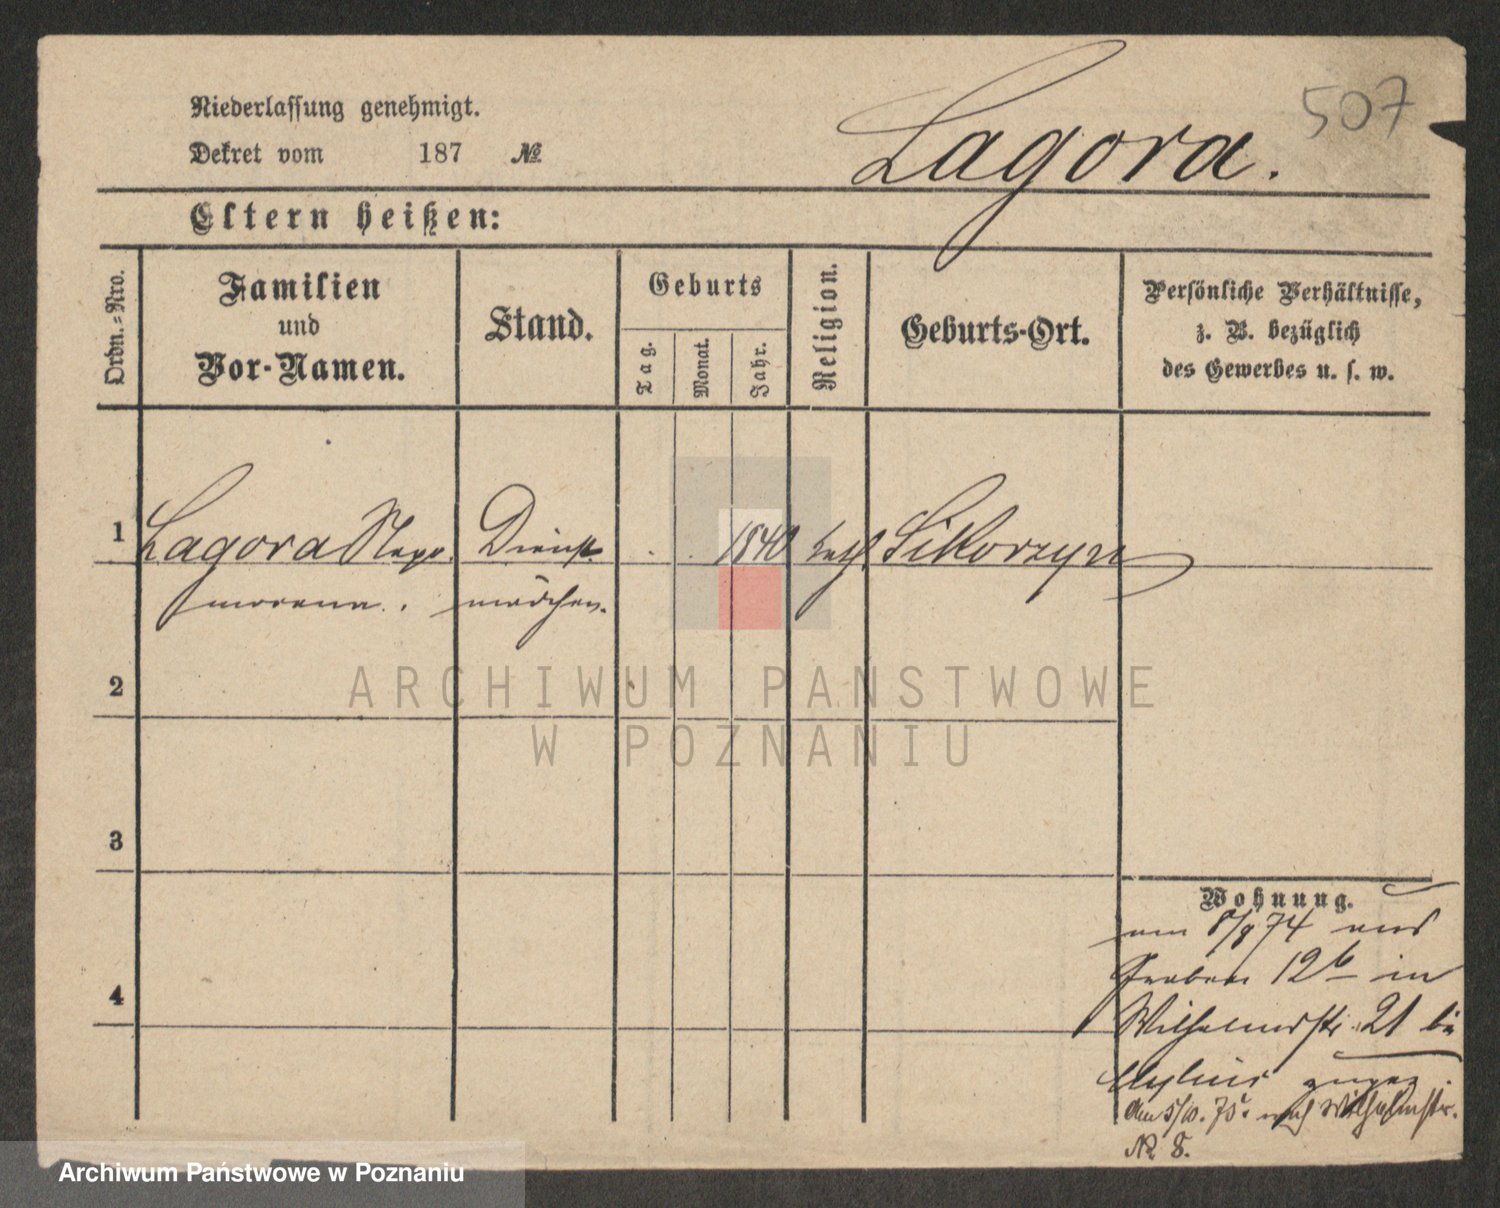 507
Niederlassung genehmigt.
Dekret vom 187 №
Lagora.
Eltern heißen:
Ordn.-Nro.
Familien
und
Vor-Namen.
Stand.
Geburts
Tag.
Monat.
Jahr.
Religion.
Geburts-Ort.
Persönliche Verhältnisse,
z. B. bezüglich
des Gewerbes u. s. w.
1 Lagora Dienst- 1840 kath. Sikorzyn
mädchen.
2
3
4
Wohnung.
am 8/8 74 aus
Graben 12b in
Wilhelmstr. 21 bei
Mylius zugez.
den 5/10. 75. nach Wilhelmstr.
№ 8.
ARCHIWUM PAŃSTWOWE
W POZNANIU
Archiwum Państwowe w Poznaniu